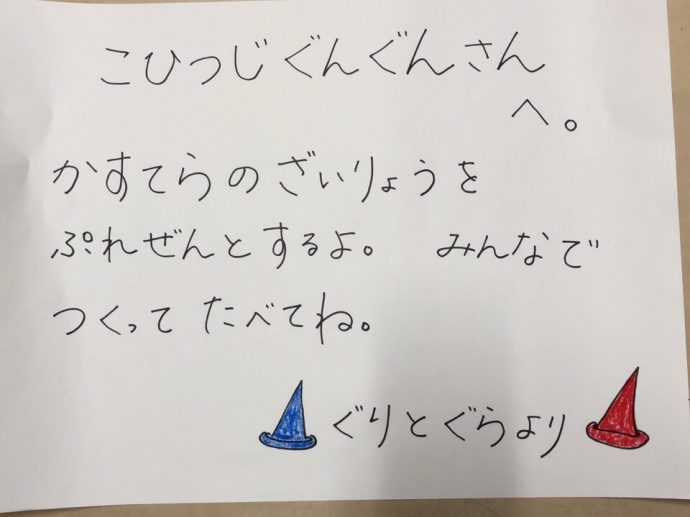 こひつじぐんぐんさん
へ。
かすてらのざいりょうを
ぷれぜんとするよ。 みんなで
つくって たべてね。
ぐりとぐらより